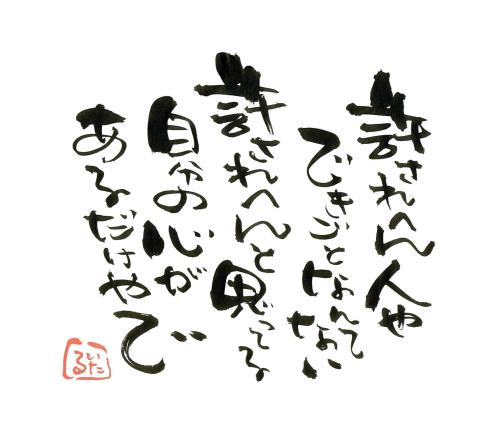 許されへん人や
できごとなんてない
許されへんと思ってる
自分の心が
あるだけやで